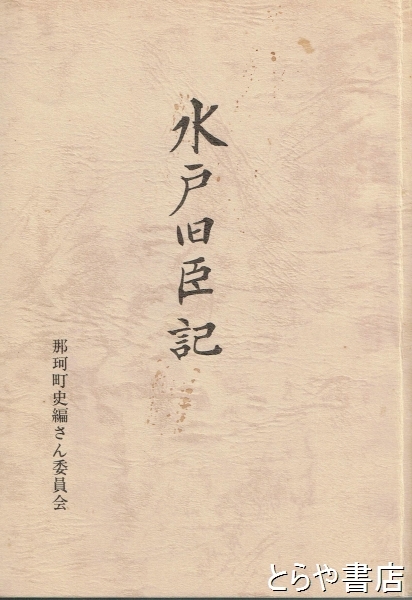 水戸旧臣記
那珂町史編さん委員会
とらや書店